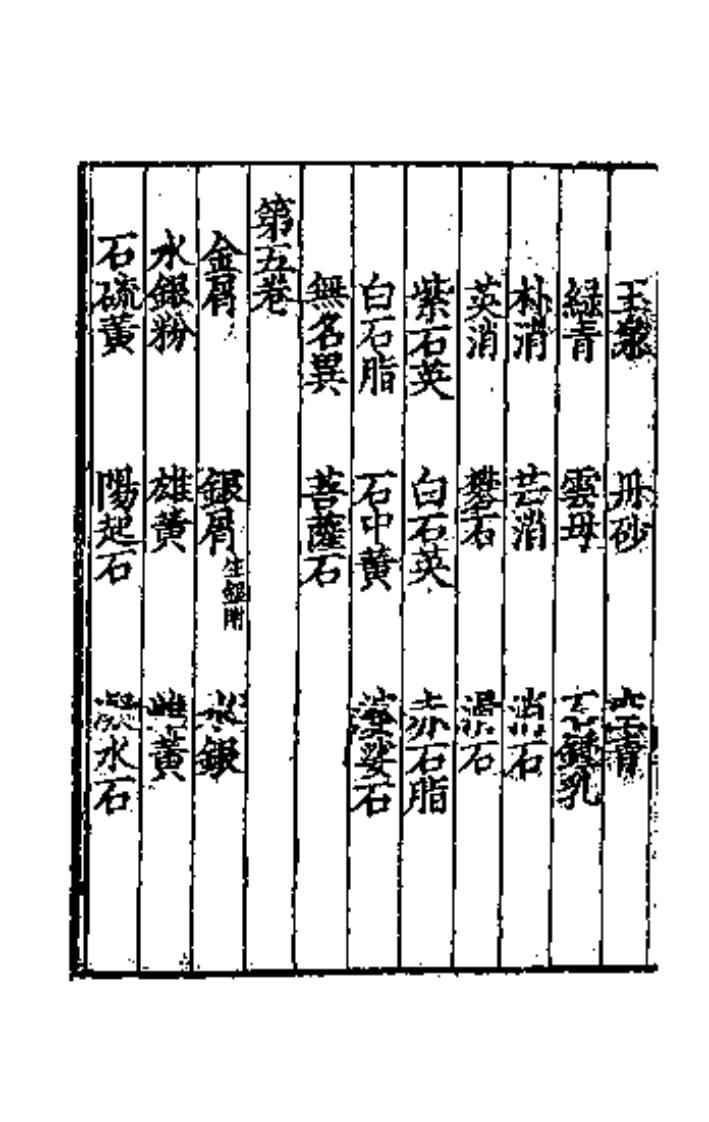 玉漿　丹砂　空青
緑青　雲母　石鍾乳
朴消　芒消　消石
英消　礬石　滑石
紫石英　白石英　赤石脂
白石脂　石中黄　婆娑石
無名異　菩薩石
第五卷
金屑　銀屑生銀附　水銀
水銀粉　雄黄　雌黄
石硫黄　陽起石　凝水石